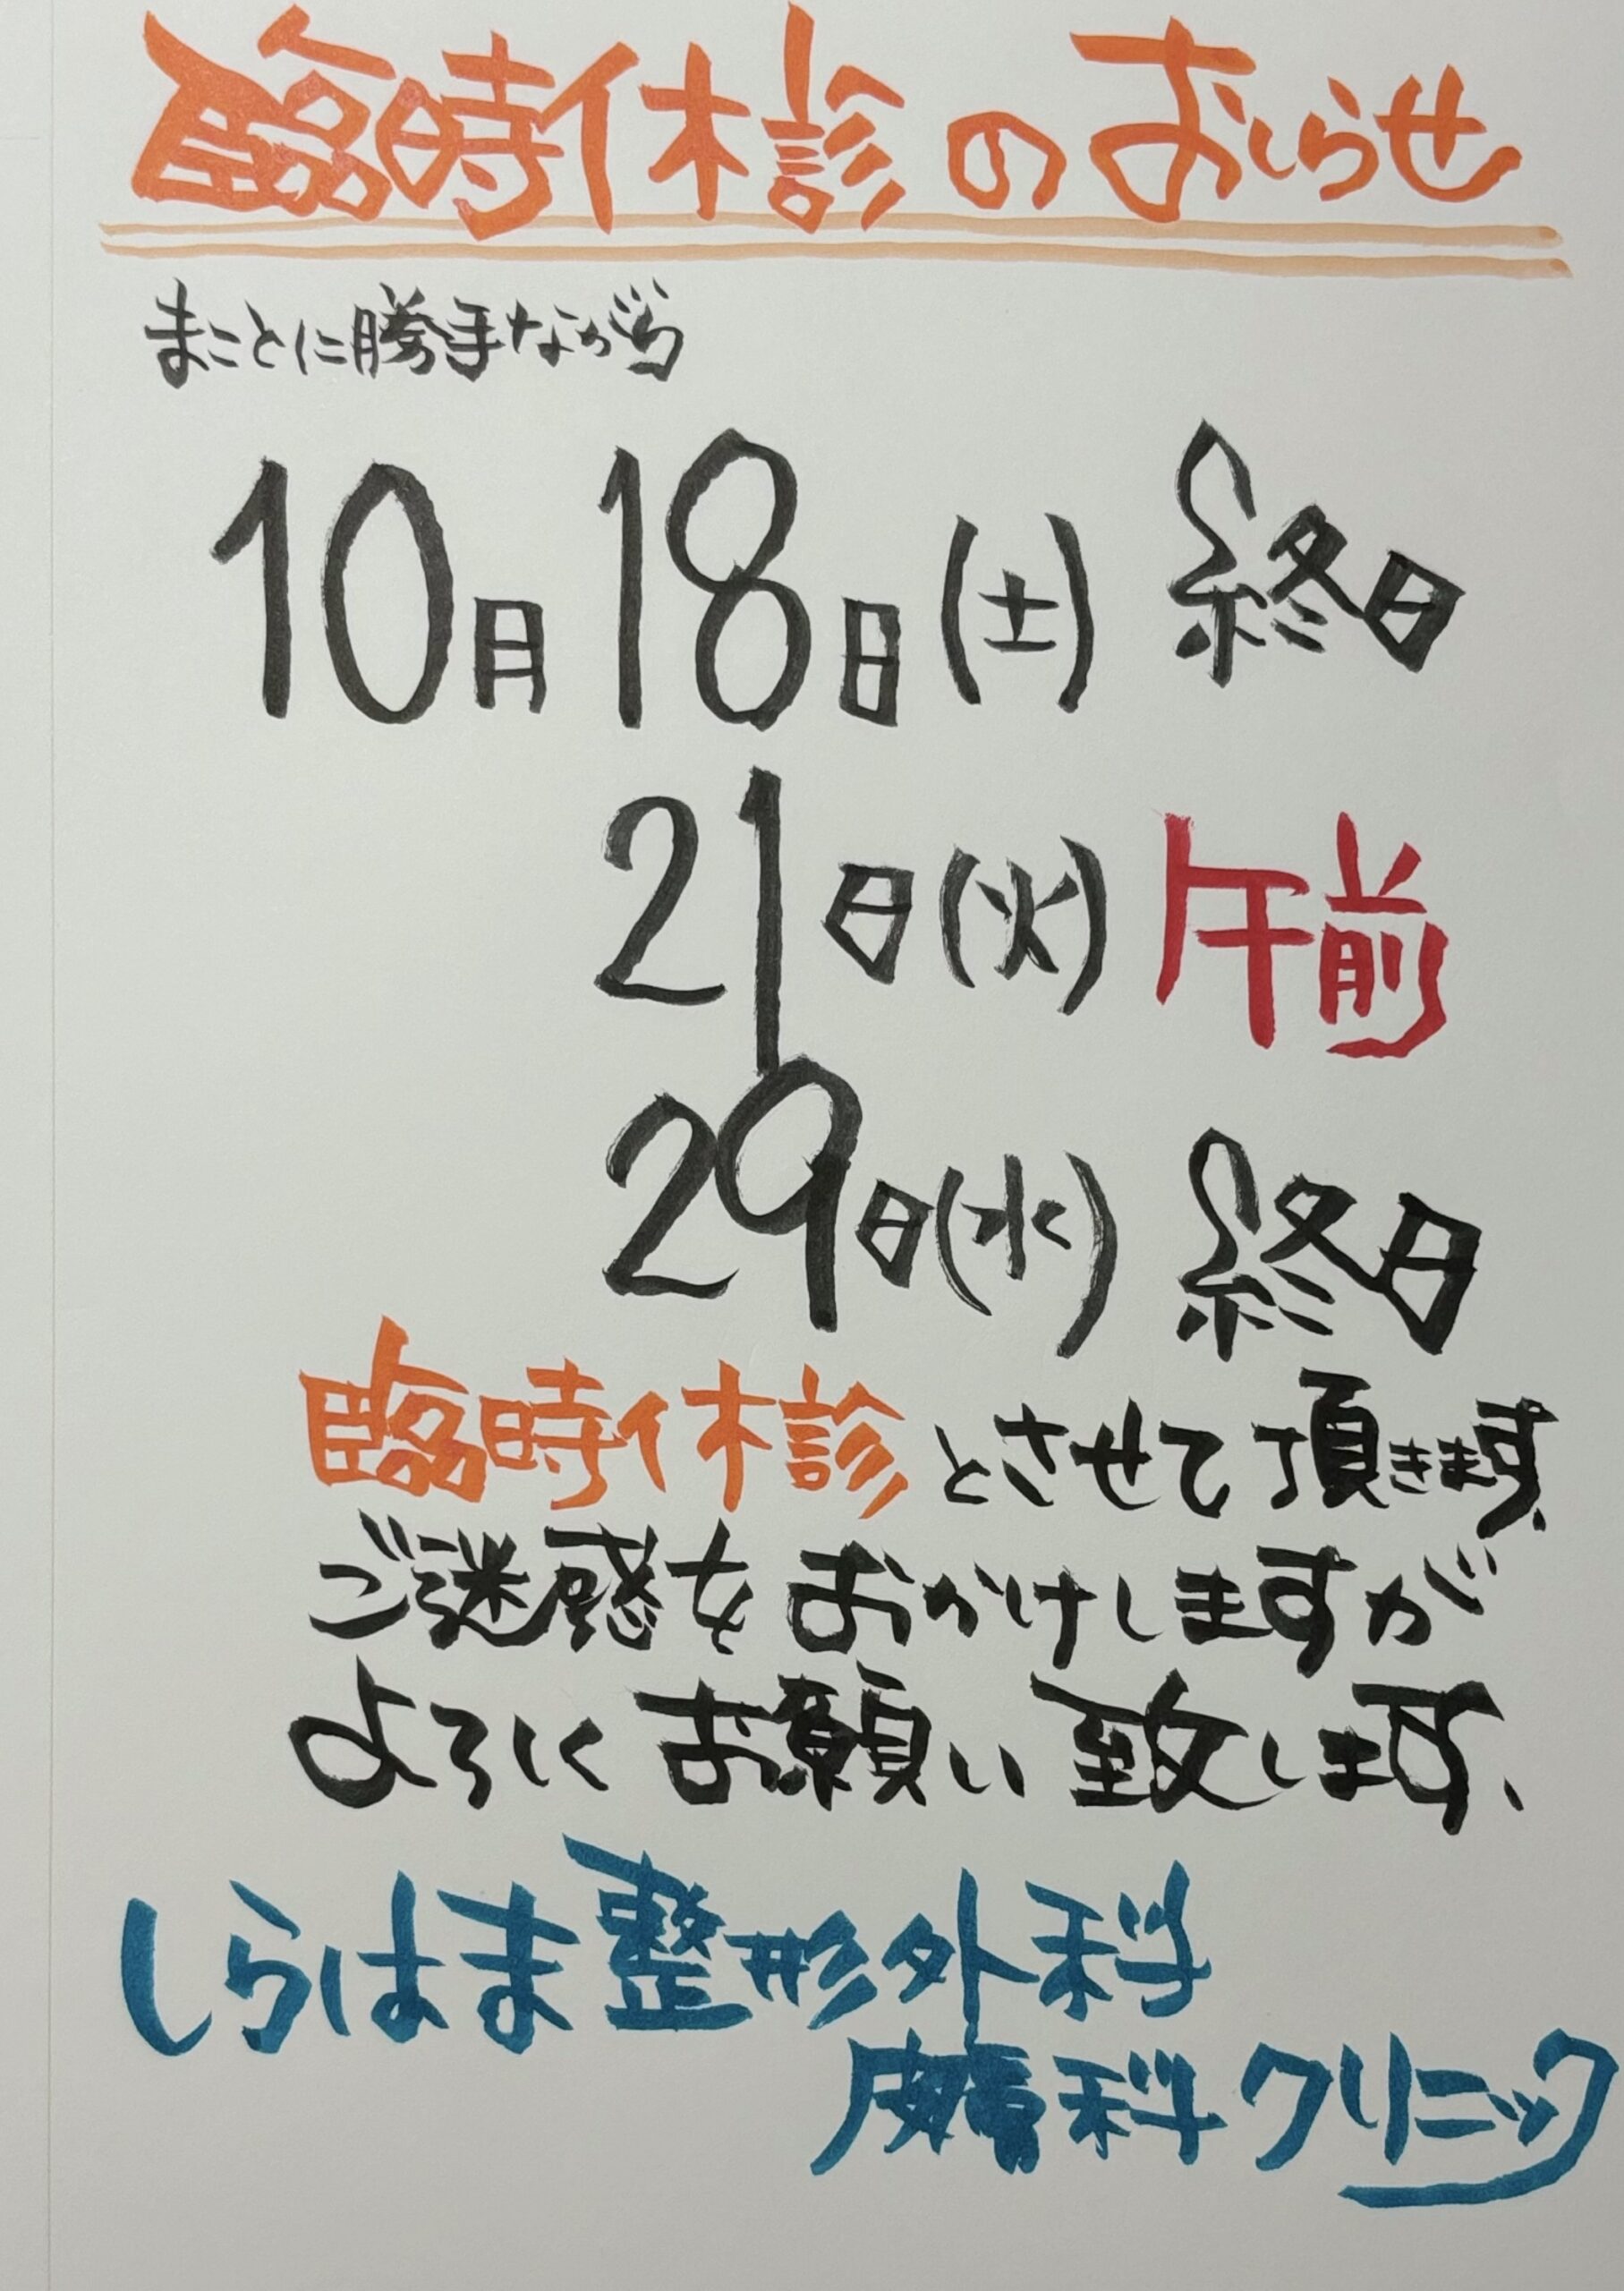 臨時休診のおしらせ
まことに勝手ながら
10月18日(土) 終日
21日(火) 午前
29日(水) 終日
臨時休診とさせて頂きます、
ご迷惑をおかけしますが
よろしくお願い致します、
しらはま整形外科
皮膚科クリニック